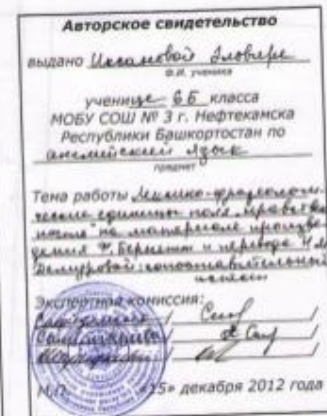 Авторское свидетельство
выдано Иксановой Эльвире
Ф.И. ученика
ученице 6Б класса
МОБУ СОШ № 3 г. Нефтекамска
Республики Башкортостан по
английский язык
предмет
Тема работы Лексико-фразеологи-
ческие единицы поля "нравствен
ность" на материале произве
дения Ф. Бернетт и перевода Н.М.
Демуровой: сопоставительный
Экспертная комиссия:
М.П. «15» декабря 2012 года